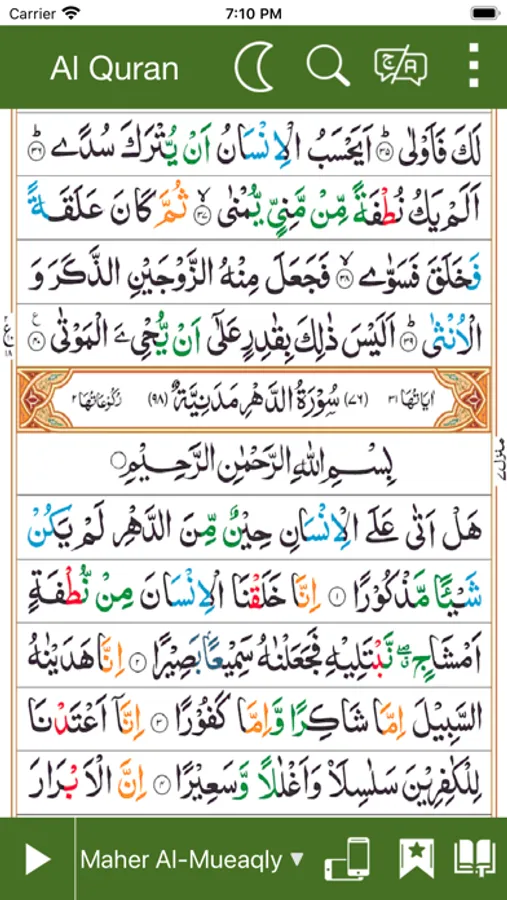 Carrier 7:10 PM
Al Quran
لَكَ فَاَوْلٰى ۳۵ اَیَحْسَبُ الْاِنْسَانُ اَنْ یُّتْرَكَ سُدًے ۳۶
اَلَمْ یَكُ نُطْفَةً مِّنْ مَّنِیٍّ یُّمْنٰى ۳۷ ثُمَّ كَانَ عَلَقَةً
فَخَلَقَ فَسَوّٰے ۳۸ فَجَعَلَ مِنْهُ الزَّوْجَیْنِ الذَّكَرَ وَ
الْاُنْثٰى ۳۹ اَلَیْسَ ذٰلِكَ بِقٰدِرٍ عَلٰۤی اَنْ یُّحْیِۦَ الْمَوْتٰى ۴۰
اٰیَاتُهَا ۳۱ (۷۶) سُوْرَةُ الدَّهْرِ مَدَنِیَّةٌ (۹۸) رُكُوْعَاتُهَا ۲
بِسْمِ اللهِ الرَّحْمٰنِ الرَّحِیْمِ
هَلْ اَتٰى عَلَے الْاِنْسَانِ حِیْنٌ مِّنَ الدَّهْرِ لَمْ یَكُنْ
شَیْئًا مَّذْكُوْرًا ۱ اِنَّا خَلَقْنَا الْاِنْسَانَ مِنْ نُّطْفَةٍ
اَمْشَاجٍ نَّبْتَلِیْهِ فَجَعَلْنٰهُ سَمِیْعًۢا بَصِیْرًا ۲ اِنَّا هَدَیْنٰهُ
السَّبِیْلَ اِمَّا شَاكِرًا وَّاِمَّا كَفُوْرًا ۳ اِنَّاۤ اَعْتَدْنَا
لِلْكٰفِرِیْنَ سَلٰسِلَا۟ وَاَغْلٰلًا وَّسَعِیْرًا ۴ اِنَّ الْاَبْرَارَ
Maher Al-Mueaqly ▼